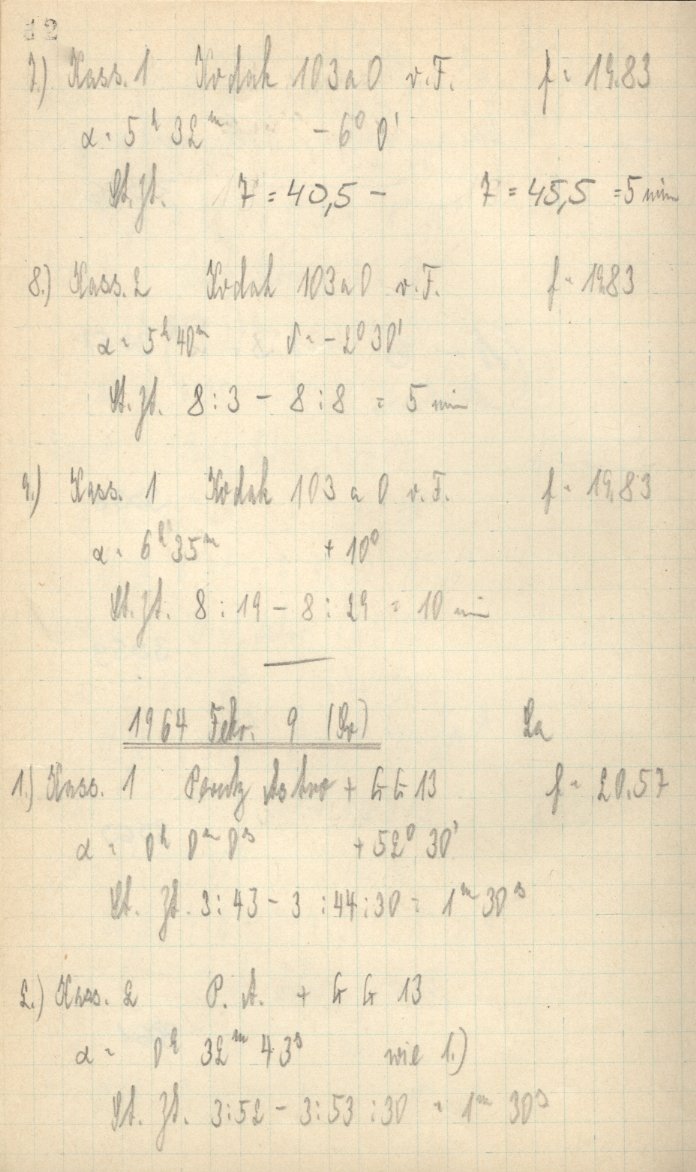 12
7.) Kass. 1 Kodak 103a0 v.F. f = 19.83
α = 5ʰ 32ᵐ - 6° 0'
St. Zt. 7 = 40,5 - 7 = 45,5 = 5 min
8.) Kass. 2 Kodak 103a0 v.F. f = 19.83
α = 5ʰ 40ᵐ δ = - 2° 30'
St. Zt. 8:3 - 8:8 = 5 min
9.) Kass. 1 Kodak 103 a 0 v.F. f = 19.83
α = 6ʰ 35ᵐ + 10°
St. Zt. 8:19 - 8:29 = 10 min
1964 Febr. 9 (Sr)
1.) Kass. 1 Perutz Astro + GG 13 f = 20.57
α = 0ʰ 0ᵐ 0ˢ + 52° 30'
St. Zt. 3:43 - 3:44:30 = 1ᵐ 30ˢ
2.) Kass. 2 P. A. + GG 13
α = 0ʰ 32ᵐ 43ˢ wie 1.)
St. Zt. 3:52 - 3:53:30 = 1ᵐ 30ˢ